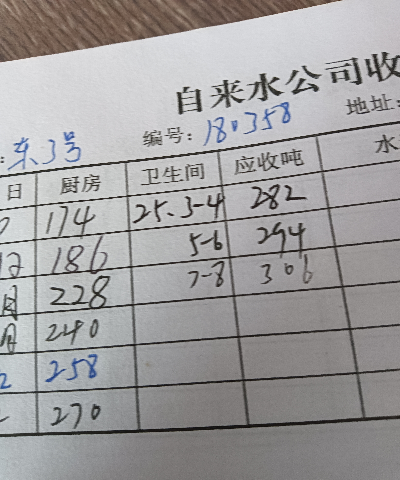 自来水公司收
:东3号 编号:180358 地址:
日 厨房 卫生间 应收吨 水
174 25.3-4 282
186 5-6 294
月 228 7-8 306
月 240
2 258
270